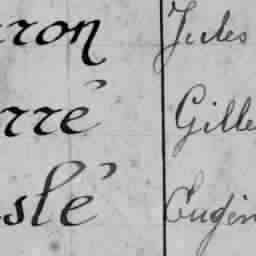 rron Jules
rré Gille
slé Eugèn